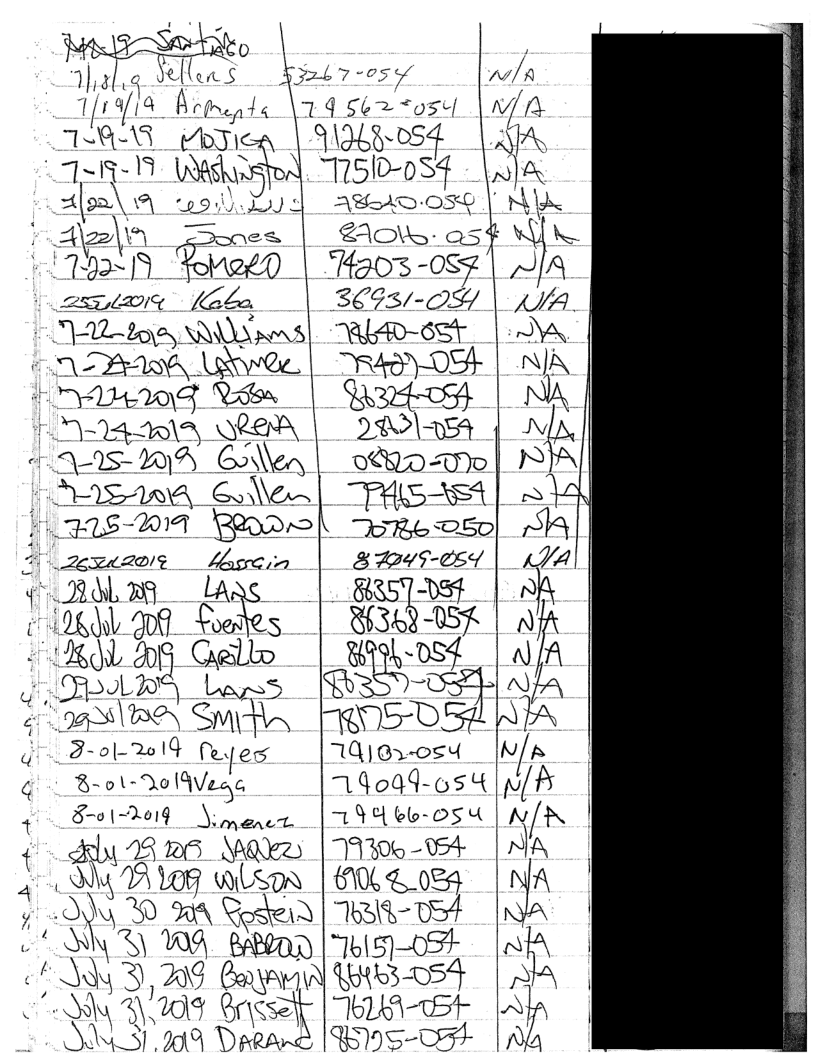 7-18-19 SANTIAGO
7/18/19 Sellers 53267-054 N/A
7/19/19 Armenta 79562-054 N/A
7-19-19 MOJICA 91268-054 N/A
7-19-19 WASHINGTON 77510-054 N/A
7/22/19 78640-054 N/A
7/22/19 Jones 87016-054 N/A
7-22-19 ROMERO 74203-054 N/A
25Jul2019 Kaba 36931-054 N/A
7-22-2019 Williams 78640-054 N/A
7-24-2019 LATIMER 79427-054 N/A
7-24-2019 ROSA 86324-054 N/A
7-24-2019 URENA 28631-054 N/A
7-25-2019 Guillen 08820-070 N/A
7-25-2019 Guillen 79465-054 N/A
7-25-2019 BROWN 70786-050 N/A
26Jul2019 Hossain 87049-054 N/A
28 Jul 2019 LANS 86357-054 N/A
28 Jul 2019 Fuentes 86368-054 N/A
28 Jul 2019 CARILLO 86996-054 N/A
29 JUL 2019 LANS 86357-054 N/A
29 Jul 2019 SMITH 78175-054 N/A
8-01-2019 Reyes 79102-054 N/A
8-01-2019 Vega 79099-054 N/A
8-01-2019 Jimenez 79966-054 N/A
July 29 2019 JAQUEZ 79306-054 N/A
July 29 2019 WILSON 69068-054 N/A
July 30 2019 Epstein 76318-054 N/A
July 31 2019 BABROW 76157-054 N/A
July 31, 2019 BENJAMIN 86463-054 N/A
July 31, 2019 Brissett 76269-054 N/A
July 31, 2019 86725-054 N/A